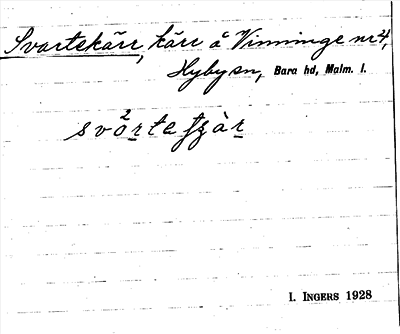 Svartekärr, kärr å Vinninge nr 4,
Hyby sn, Bara hd, Malm. l.
svårtefʂàr
I. INGERS 1928